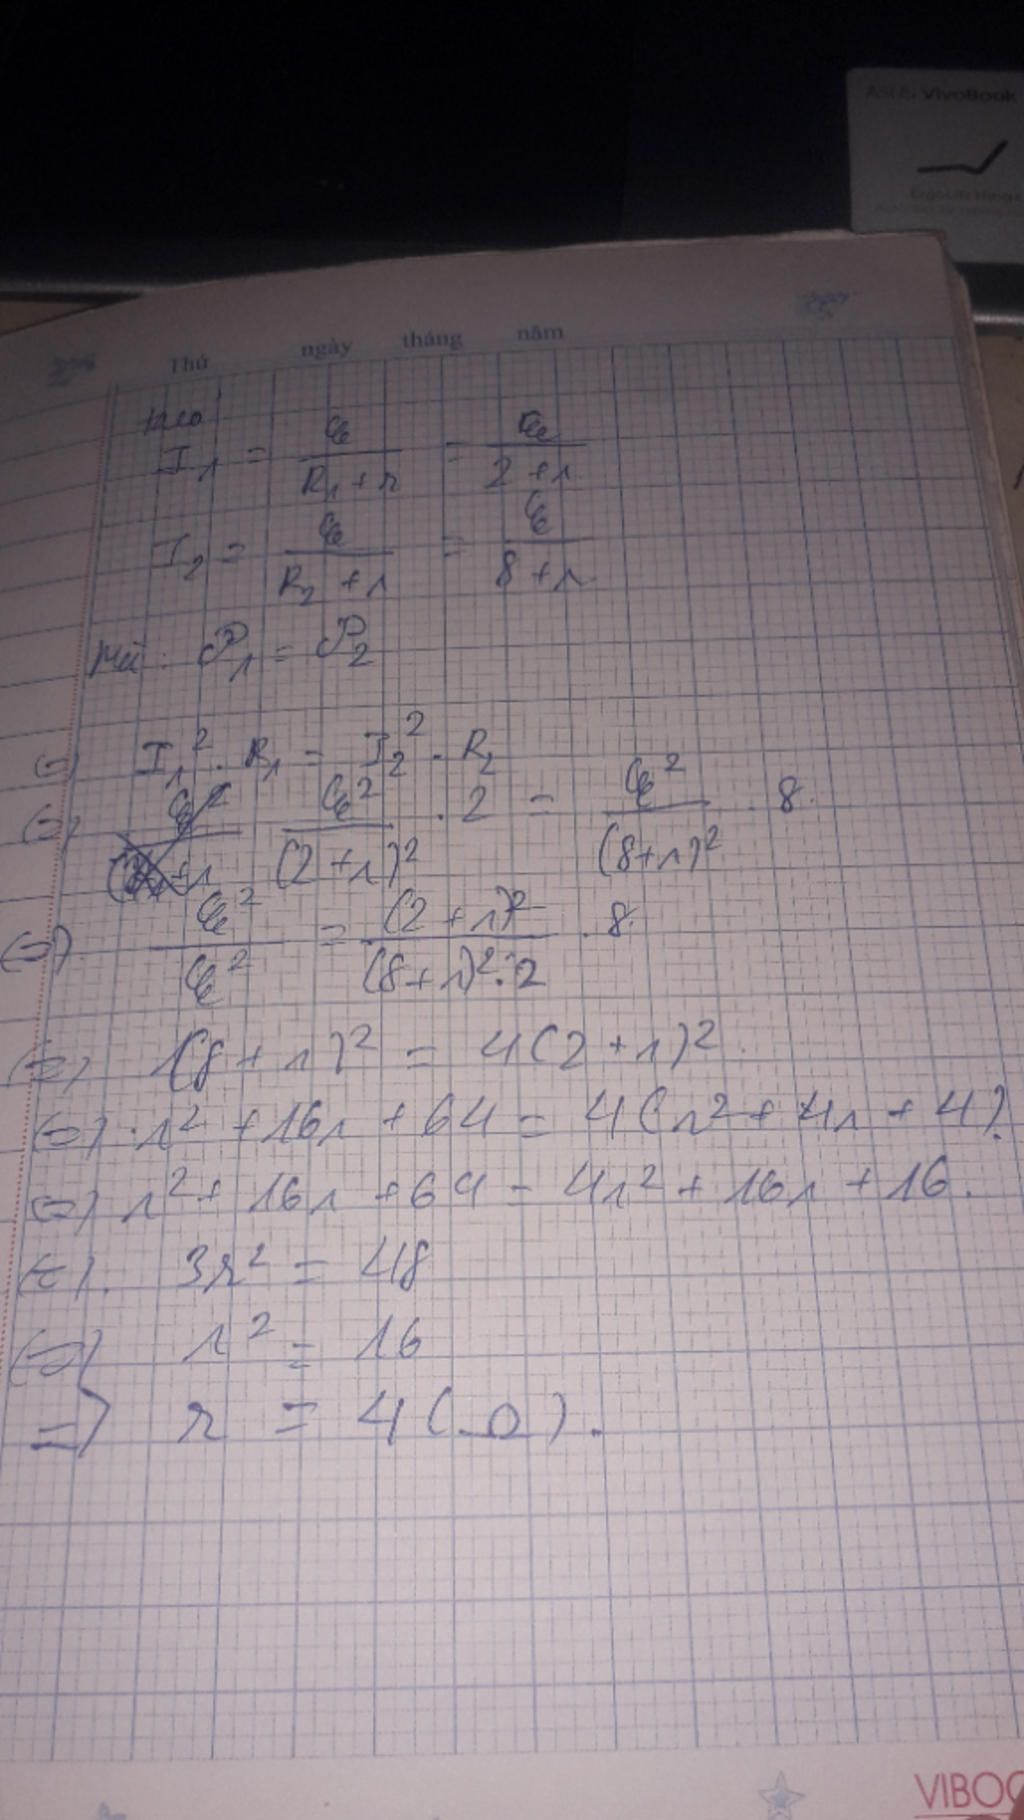 ASUS VivoBook
ErgoLift Hinge
Thứ ngày tháng năm
I1 = ℰ / (R1 + r) = ℰ / (2 + r)
I2 = ℰ / (R2 + r) = ℰ / (8 + r)
Mà : 𝒫1 = 𝒫2
(=) I1² . R1 = I2² . R2
(=) ℰ² / (2 + r)² . 2 = ℰ² / (8 + r)² . 8.
(=) ℰ² / ℰ² = (2 + r)² / (8 + r)² . 2 . 8.
(=) (8 + r)² = 4(2 + r)².
(=) r² + 16r + 64 = 4(r² + 4r + 4).
(=) r² + 16r + 64 = 4r² + 16r + 16.
(=). 3r² = 48
(=) r² = 16
=> r = 4 (Ω).
VIBOO